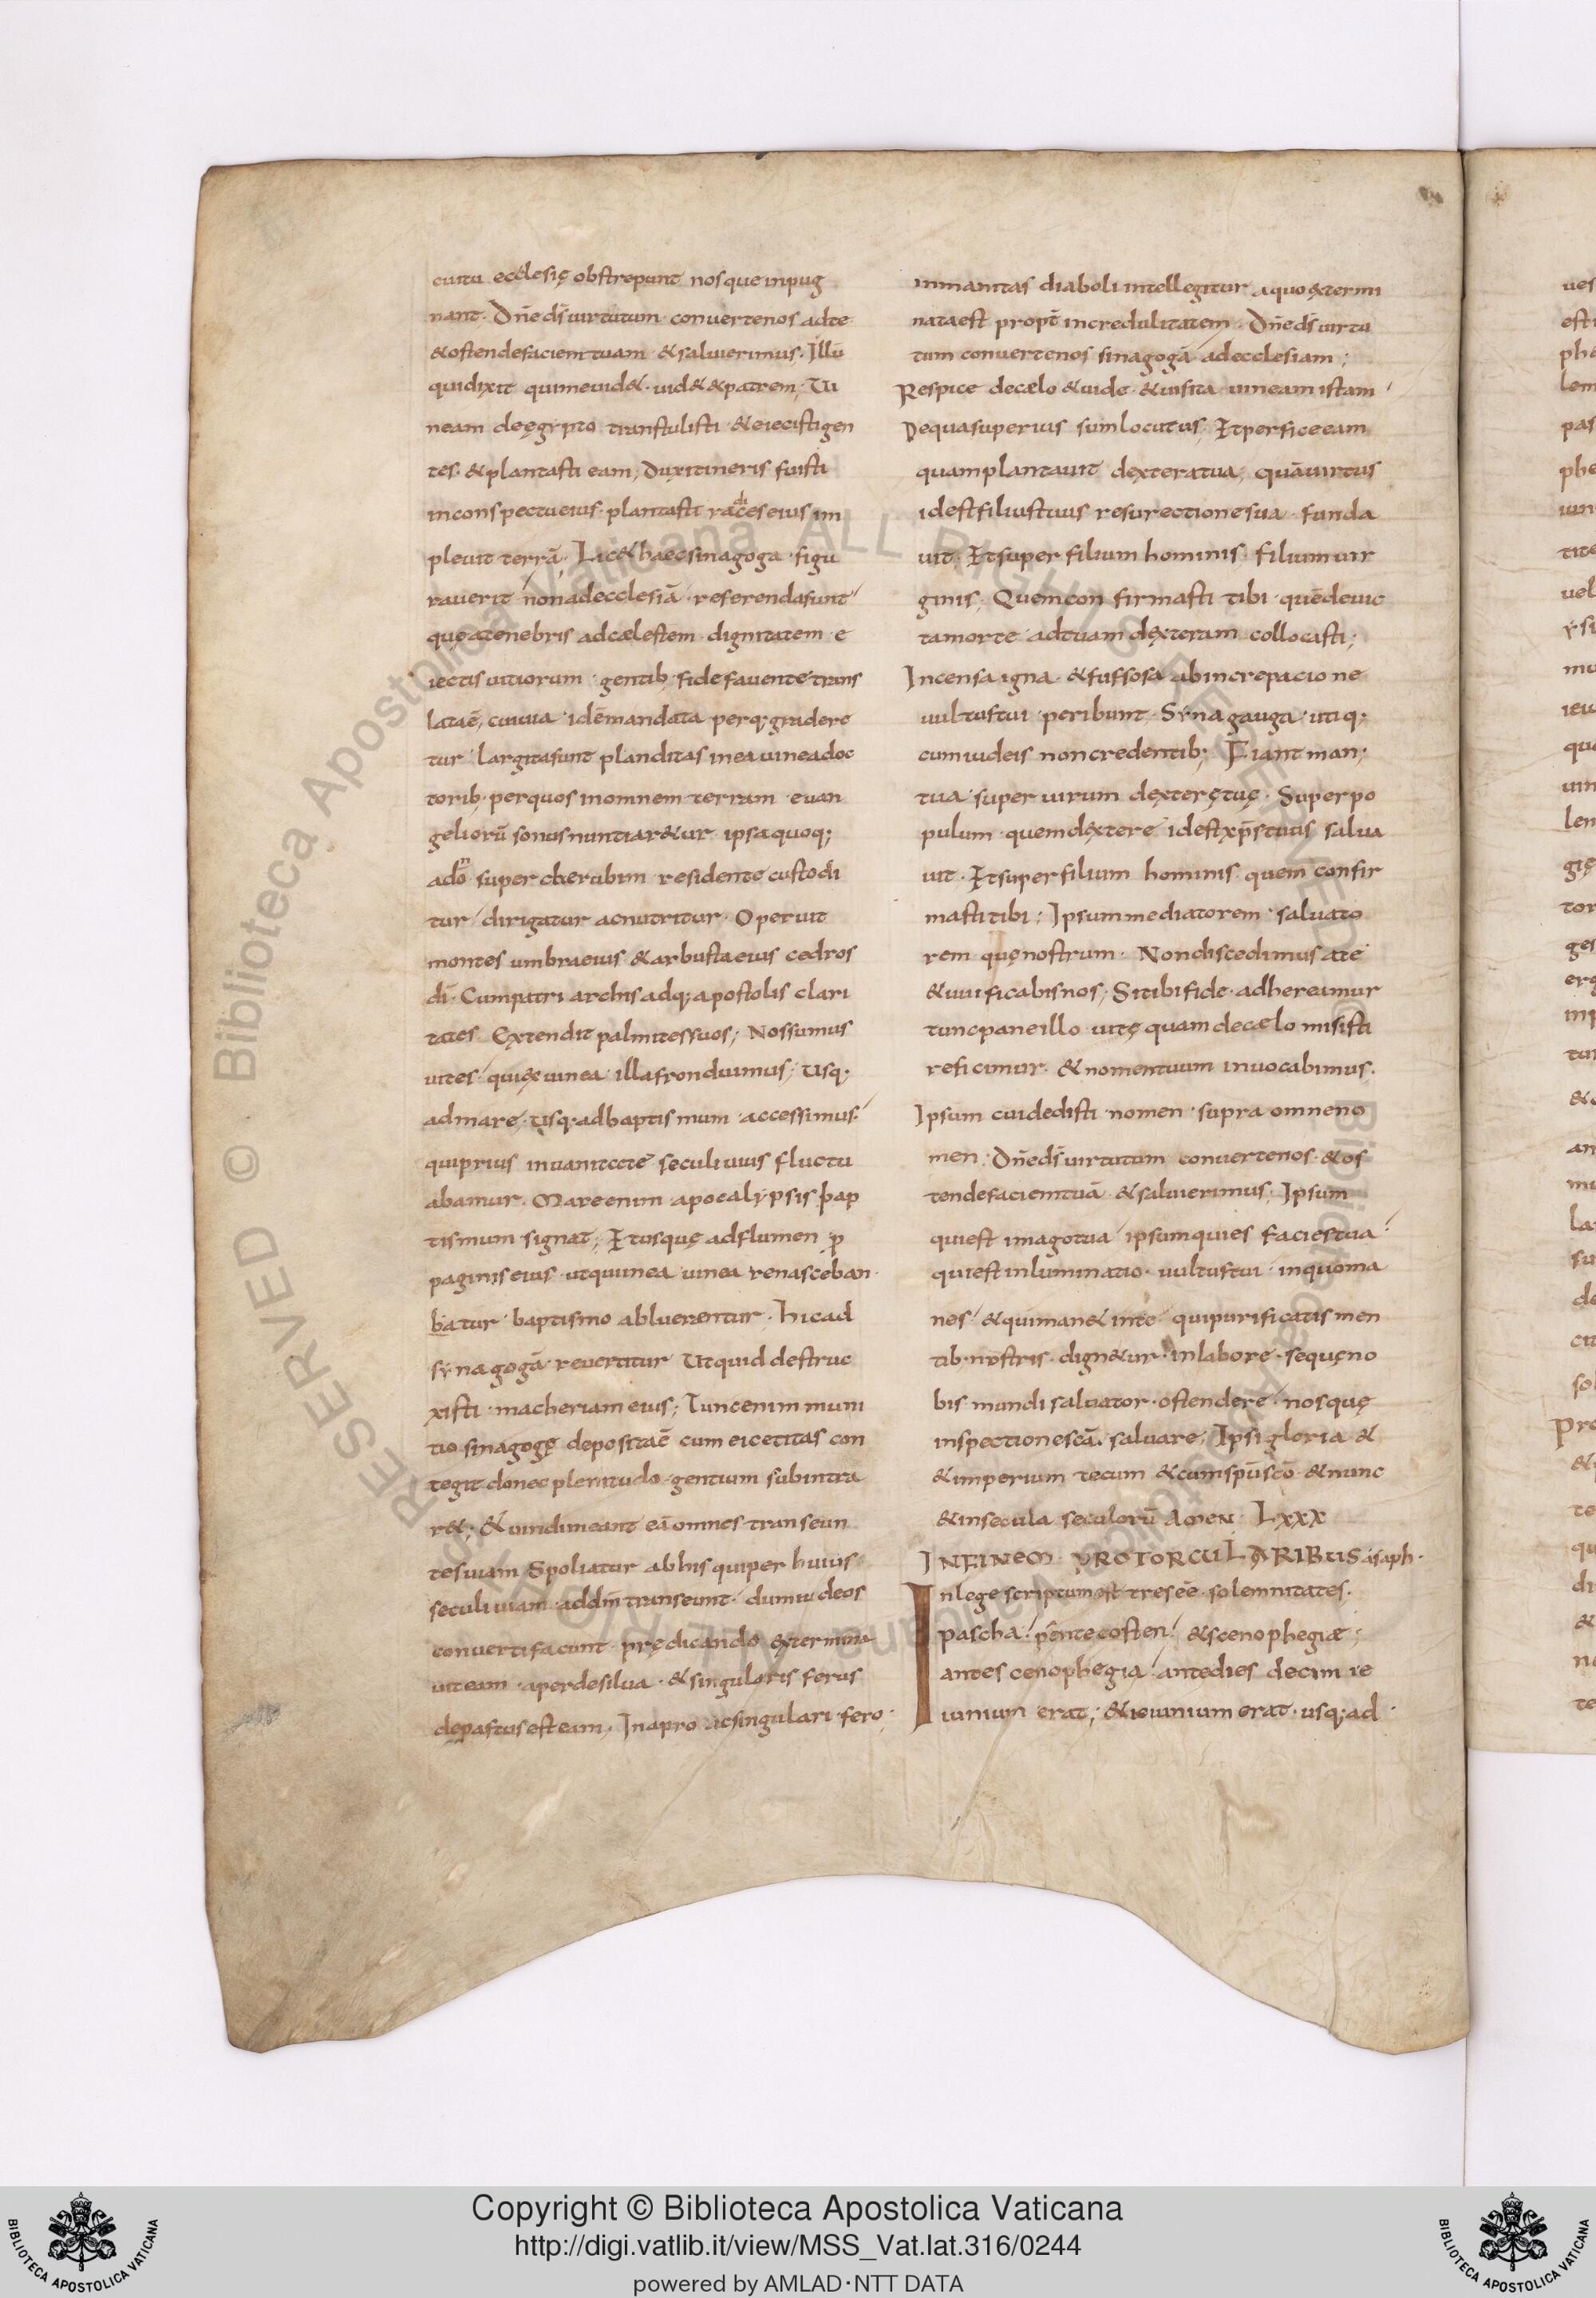 cuitu ecclesię obstrepunt nosque inpug
nant. Dn̄e ds̄ uirtutum conuertenos adte
& ostendefaciemtuam & saluierimus. Illū
quidixit quimeuid&. uid& & patrem; Ui
neam deęgypto transtulisti & eiecistigen
tes. & plantasti eam; Duxitineris fuisti
inconspectueius. plantasti racęs eius im
pleuit terrā; Lic& haecsinagoga. figu
rauerit nonadecclesiā. referendasunt
quęatenebris adcælestem dignitatem e
iectis uitiorum. gentib; fidefauente trans
lataē, cuiuia idēmandata perq; gradere
tur largitasunt planditas inea uineadoc
torib; perquos inomnem terram euan
geliorū sonusnuntiar&ur ipsaquoq;
adō super cherubim residente custodi
tur dirigatur acnutritur. Operuit
montes umbraeius & arbustaeius cedros
dī. Cumpatri archis adq; apostolis clari
tates. Extendit palmitessuos; Nossumus
uites quięxuinea illafronduimus; Usq;
admare; usq; adbaptismum accessimus.
quiprius inuanitcte seculiuius fluctu
abamur. Mareenim apocalypsis bap
tismum signat; Etusquę adflumen p̱
paginiseius utquinea uinea renasceban
batur baptismo abluerentur. hicad
synagogā reuertitur Utquid destruc
xisti macheriam eius; Tuncenim muni
tio sinagogę depositaē cum eicetitas con
tegit donec plenitudo gentium subintra
r&; & uindimeant eā omnes transeun
tesuiam Spoliatur abhis quiper huius
seculi uiam. addm̄ transeunt. dumiudeos
conuertifaciunt prędicando extermina
uiteam. aperdesilua. & singularis ferus
depastusesteam. Inapro acsingulari fero
inmanitas diaboli intellegitur aquo extermi
nataest propt̄ incredulitatem. Dn̄e ds̄ uirtu
tum conuertenos sinagogā adecclesiam;
Respice decælo & uide & uisita uineam istam
Dequasuperius sumlocutus; Etperficeeam
quamplantauit dexteratua; quāuirtus
idestfiliustuus resurectionesua funda
uit. Etsuper filium hominis. filiumuir
ginis. Quemcon firmasti tibi quēdeuic
tamorte adtuam dexteram collocasti;
Incensaigna & suffosa abincrepacione
uultustui peribunt. Synagauga utiq;
cumiudeis noncredentib; Fiant man;
tua super uirum dexterętuę. Superpo
pulum quemdextere idestxp̄stuus salua
uit. Etsuperfilium hominis quem confir
mastitibi; Ipsummediatorem saluato
rem quęnostrum. Nondiscedimus ate
& uiuificabisnos; Sitibifide adhereamur
tuncpaneillo uitę quam decælo misisti
reficimur. & nomentuum inuocabimus.
Ipsum cuidedisti nomen supra omneno
men. Dn̄e ds̄ uirtutum conuertenos. & os
tendefaciemtuā & saluierimus; Ipsum
quiest imagotua ipsumquies faciestua
quiest inluminatio. uultustui inquoma
nes & quiman& inte quipurificatis men
tib; nostris dign&ur inlabore. sequęno
bis mundi saluator. ostendere nosquę
inspectionescā. saluare; Ipsi gloria &
& imperium tecum & cumspū scō & nunc
& insecula seculorū Amen LXXX
INFINEM PROTORCULARIBUS asaph.
Inlege scriptum est tresēe solemnitates.
pascha. pentecosten & scenophegiæ;
antes cenophegia antedies decim ie
iunium erat; & ieiunium erat usq; ad
Copyright © Biblioteca Apostolica Vaticana
http://digi.vatlib.it/view/MSS_Vat.lat.316/0244
powered by AMLAD·NTT DATA